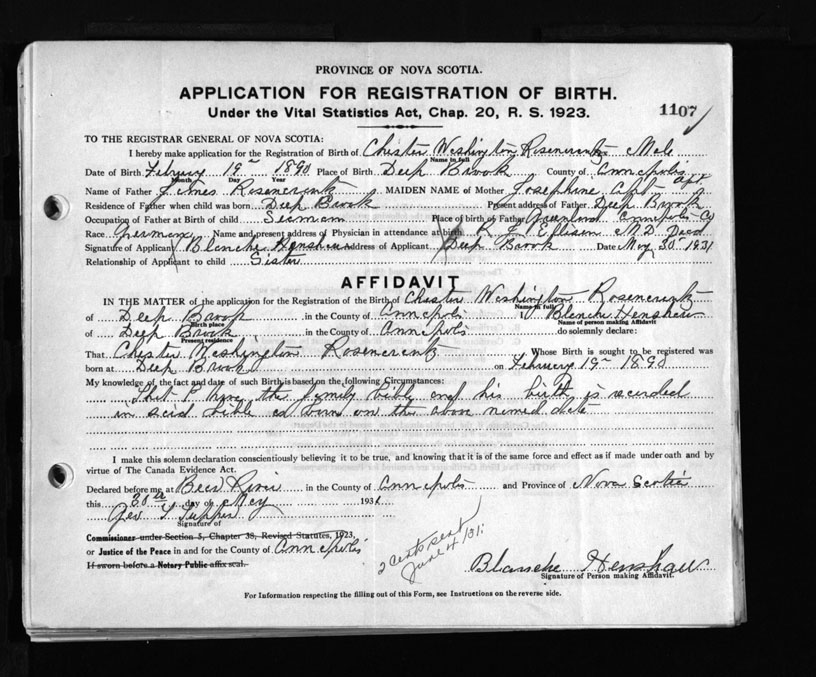 PROVINCE OF NOVA SCOTIA.
APPLICATION FOR REGISTRATION OF BIRTH.
Under the Vital Statistics Act, Chap. 20, R. S. 1923.
1107
TO THE REGISTRAR GENERAL OF NOVA SCOTIA:
I hereby make application for the Registration of Birth of Chester Washington Rosencrantz Male
Name in full
Date of Birth February 19 1890 Place of Birth Deep Brook County of Annapolis
Month Day Year
Name of Father James Rosencrantz MAIDEN NAME of Mother Josephine Apt
Residence of Father when child was born Deep Brook Present address of Father Deep Brook
Occupation of Father at Birth of child Seaman Place of birth of Father Greenland Annapolis Co
Race German Name and present address of Physician in attendance at birth R J Ellison M.D. Dead
Signature of Applicant Blanche Henshaw Address of Applicant Deep Brook Date May 30 1931
Relationship of Applicant to child Sister
AFFIDAVIT
IN THE MATTER of the application for the Registration of the Birth of Chester Washington Rosencrantz
Name in full
of Deep Brook in the County of Annapolis I Blanche Henshaw
Birth place Name of person making Affidavit
of Deep Brook in the County of Annapolis do solemnly declare:
Present residence
That Chester Washington Rosencrantz Whose Birth is sought to be registered was
born at Deep Brook on February 19 1890
My knowledge of the fact and date of such Birth is based on the following Circumstances:
That I have the family bible and his birth is recorded
in said bible as born on the above named date
I make this solemn declaration conscientiously believing it to be true, and knowing that it is of the same force and effect as if made under oath and by
virtue of The Canada Evidence Act.
Declared before me at Bear River in the County of Annapolis and Province of Nova Scotia
this 30th day of May 1931
Geo Tupper
Signature of
Commissioner under Section 5, Chapter 38, Revised Statutes, 1923,
or Justice of the Peace in and for the County of Annapolis
If sworn before a Notary Public affix seal.
2 certs sent
June 4/31
Blanche Henshaw
Signature of Person making Affidavit.
For Information respecting the filling out of this Form, see Instructions on the reverse side.